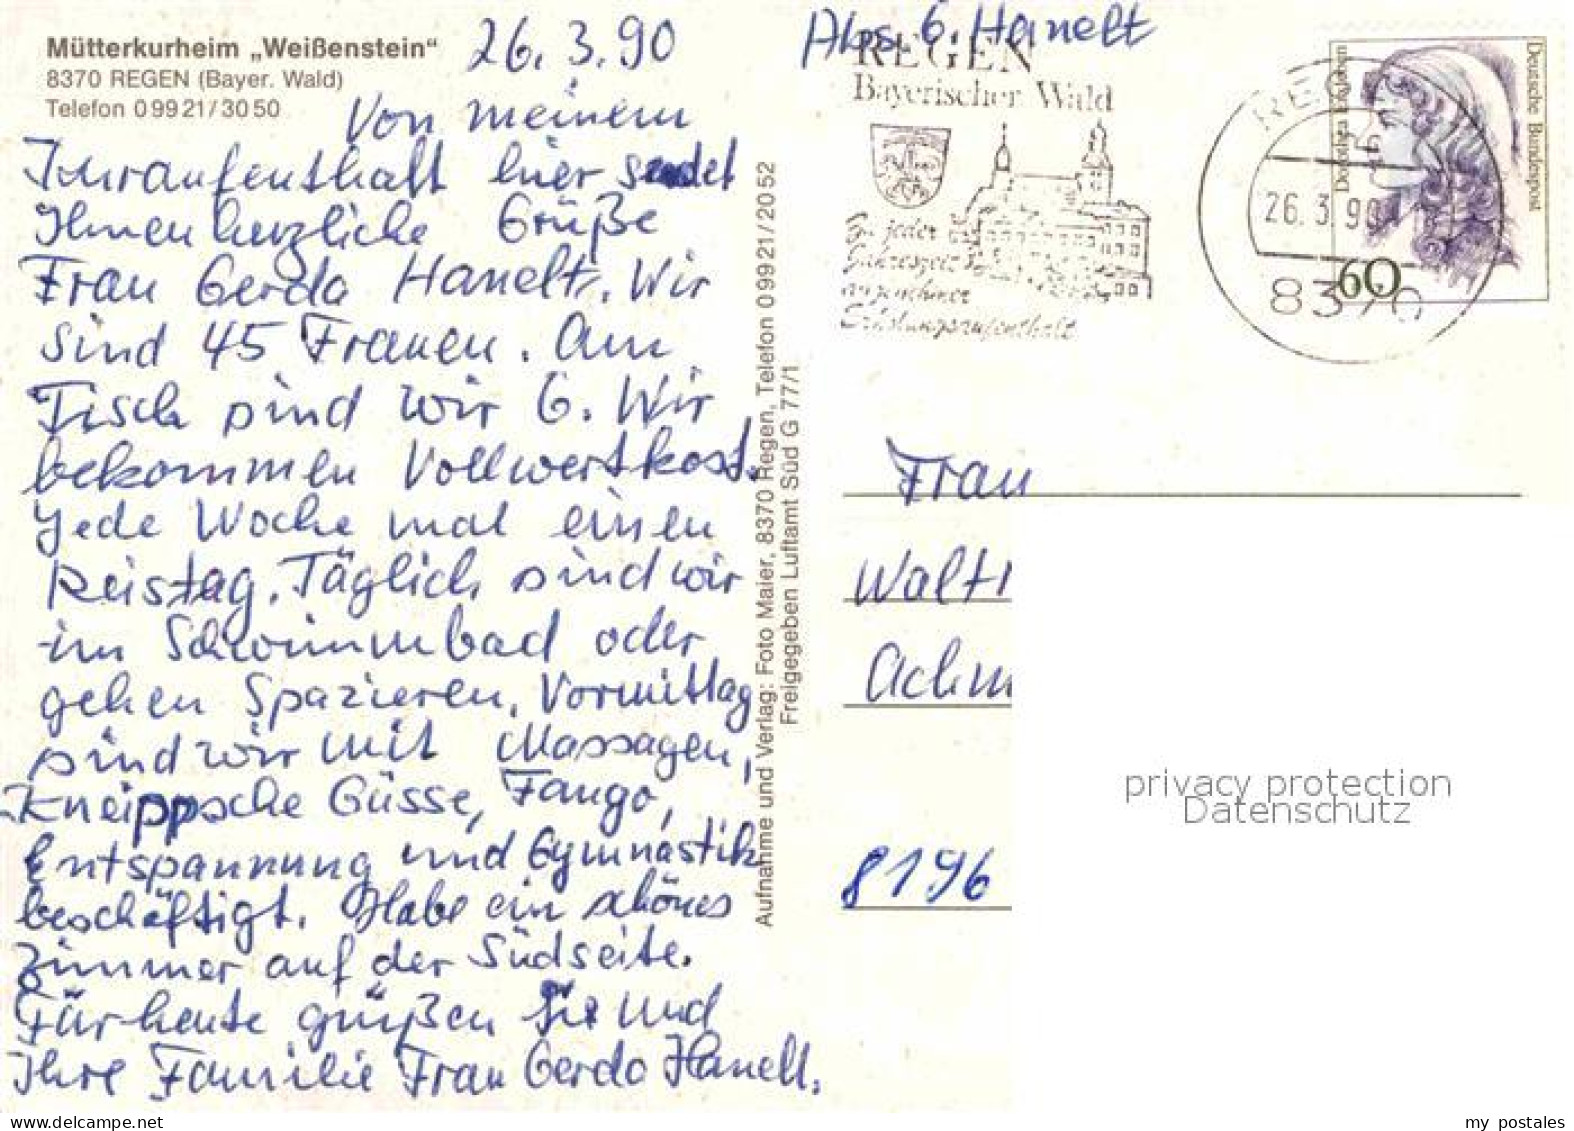 Mütterkurheim „Weißenstein“
8370 REGEN (Bayer. Wald)
Telefon 0 99 21 / 30 50
26. 3. 90
Von meinem
Kuraufenthalt hier sendet
Ihnen herzliche Grüße
Frau Gerda Hanelt. Wir
sind 45 Frauen. Am
Tisch sind wir 6. Wir
bekommen Vollwertkost.
Jede Woche mal einen
Reistag. Täglich sind wir
im Schwimmbad oder
gehen Spazieren. Vormittag
sind wir mit Massagen,
Kneippsche Güsse, Fango,
Entspannung und Gymnastik
beschäftigt. Habe ein schönes
Zimmer auf der Südseite.
Für heute grüßen Sie und
Ihre Familie Frau Gerda Hanelt.
Aufnahme und Verlag: Foto Maier, 8370 Regen, Telefon 0 99 21 / 20 52
Freigegeben Luftamt Süd G 77/1
Abs. G. Hanelt
REGEN
Bayerischer Wald
Zu jeder
Jahreszeit
angenehmer
Erholungsaufenthalt
REG
26. 3. 90
8370
Deutsche Bundespost
Dorothea Erxleben
60
Frau
Waltr
Achm
8196
privacy protection
Datenschutz
my postales